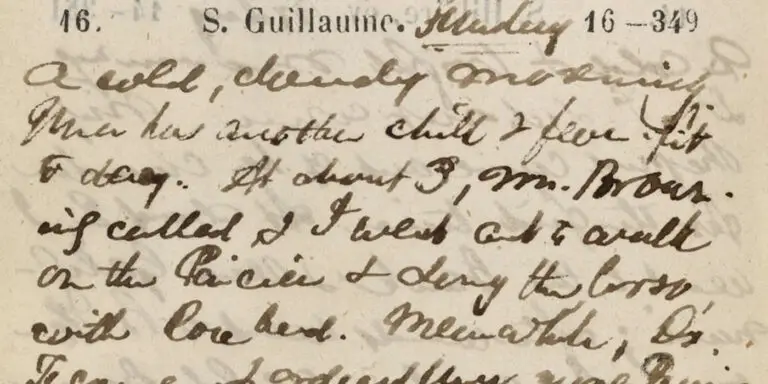 16. S. Guillaume. Sunday 16–349
A cold, cloudy morning
Una has another chill & fever-fit
to day. At about 3, Mr. Brown-
ing called, & I went out to walk
on the Pincian & along the Corso,
with Rosebud. Meanwhile, Dr.
ordered Una more